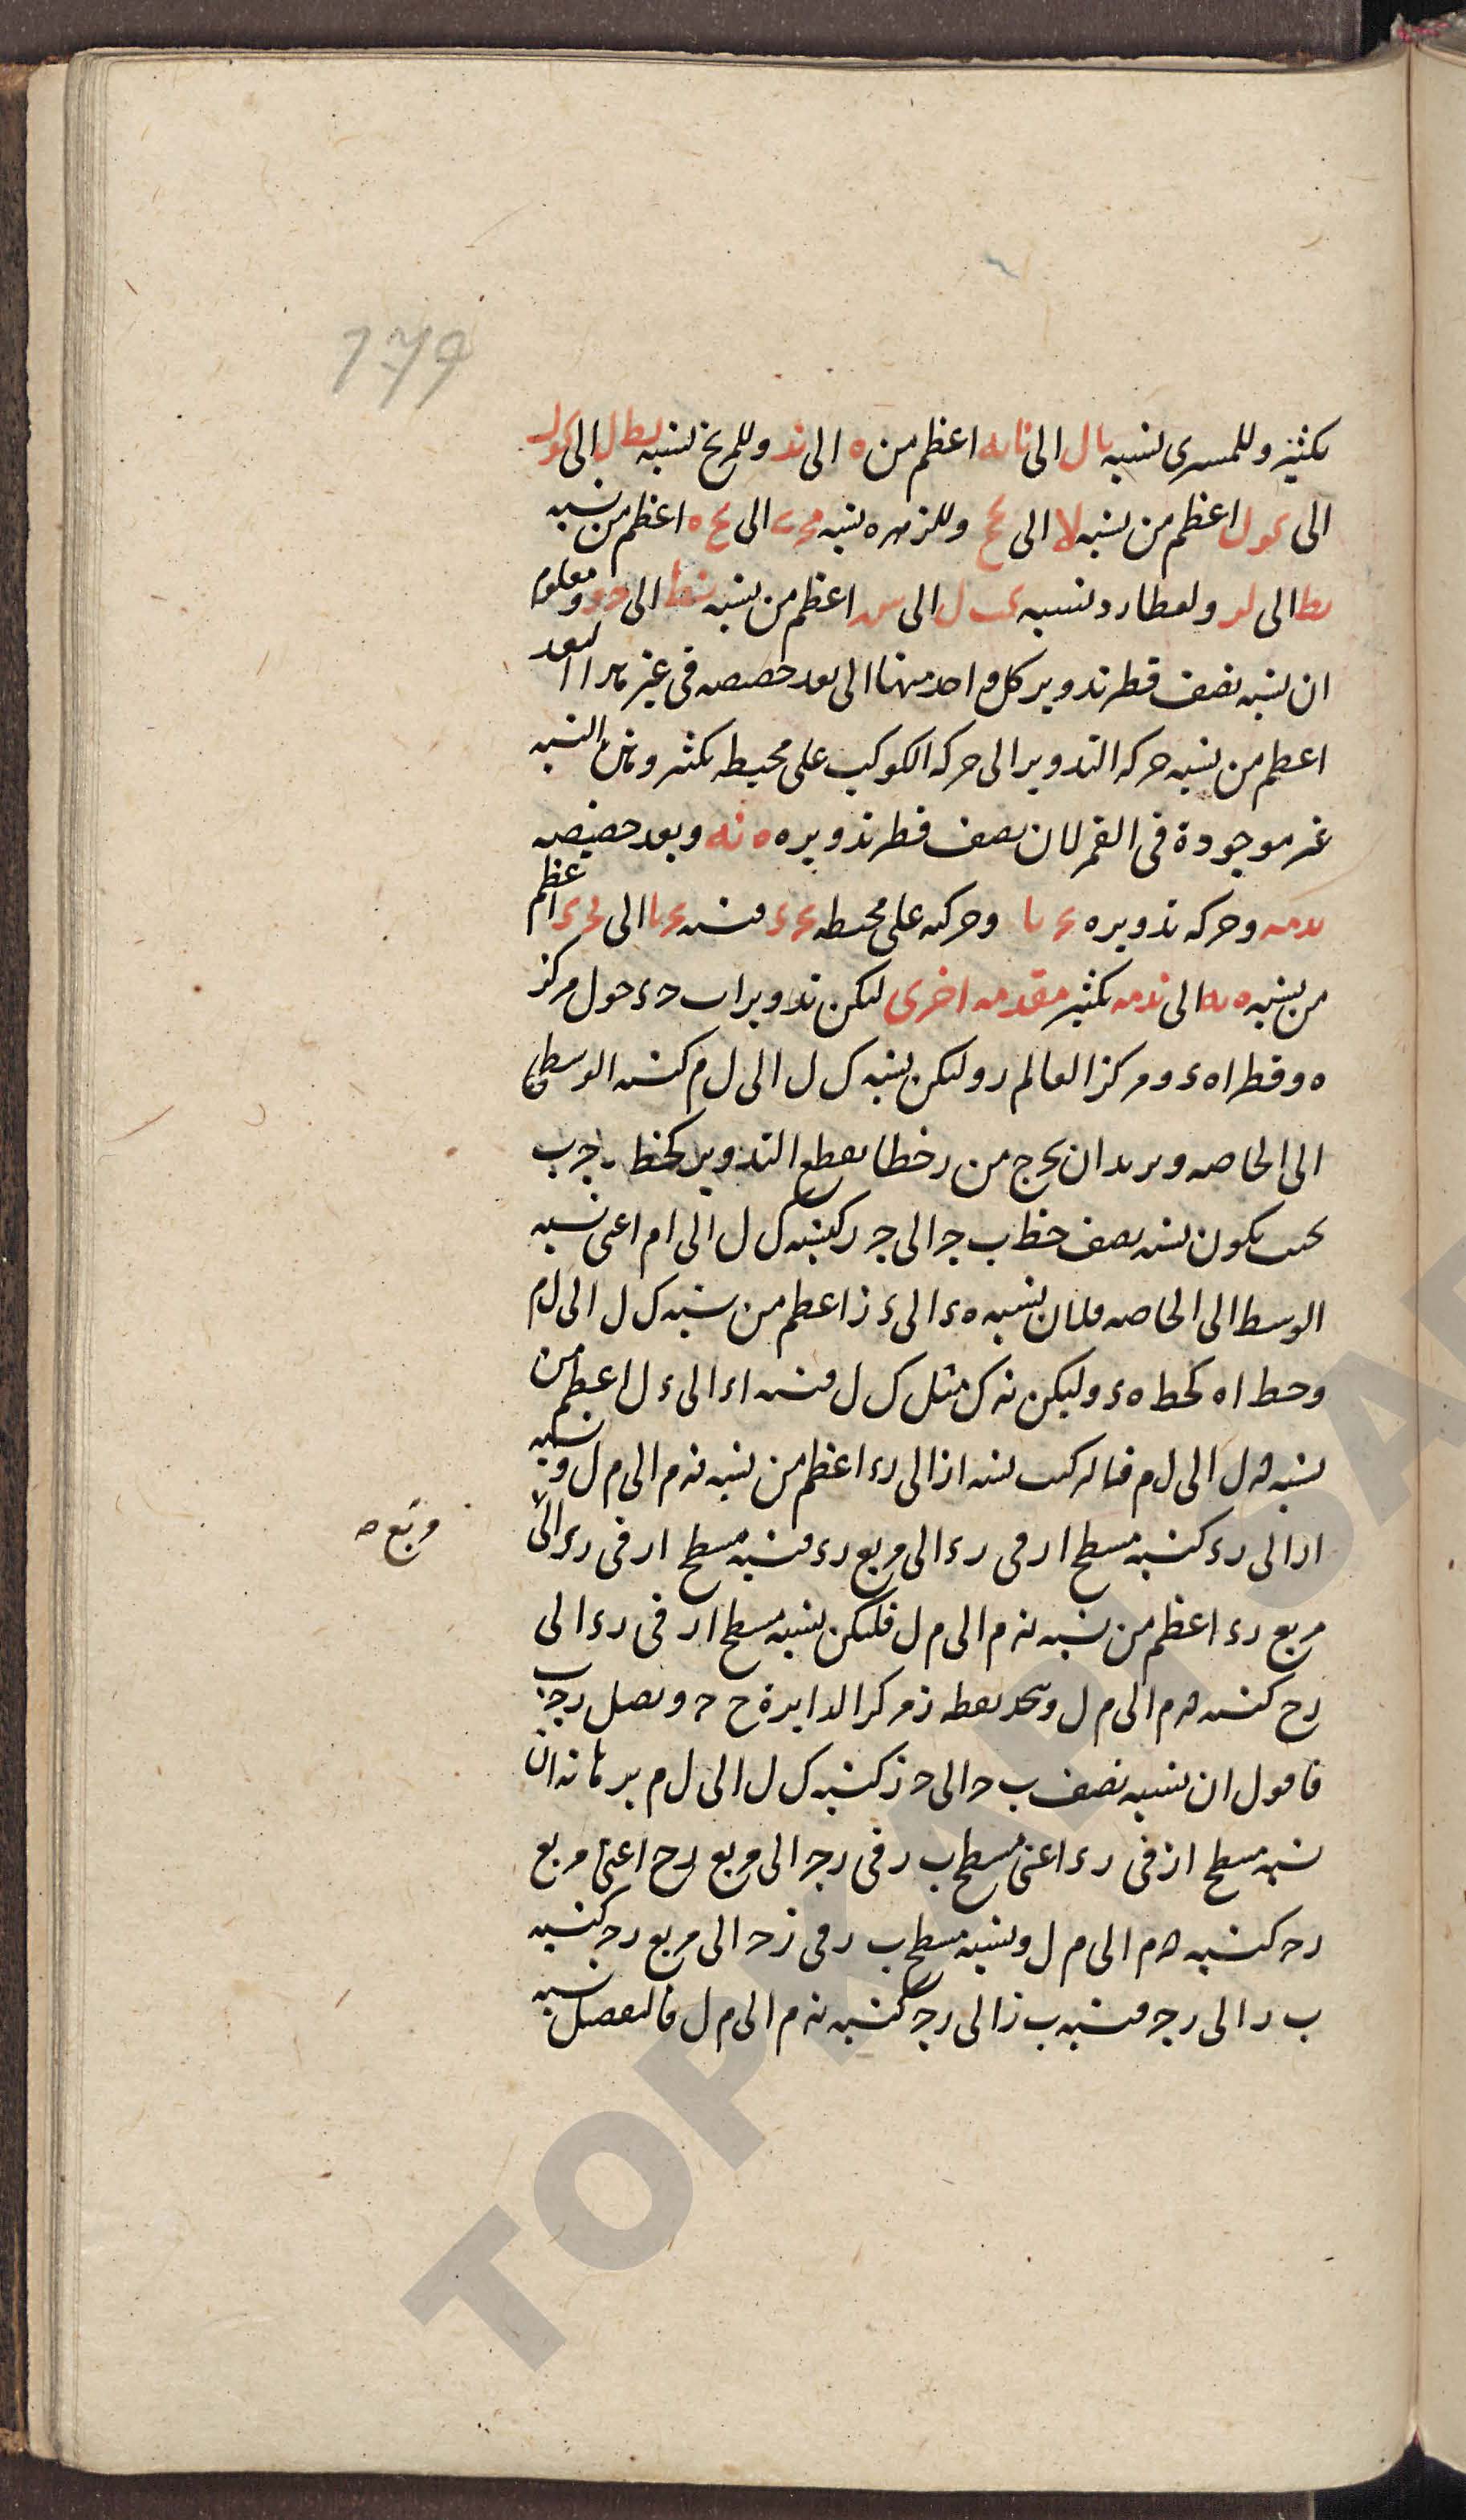 179
بكثير وللمسرى نسبه یا ل الى نا له اعظم من ه الى ند وللمريخ نسبه لط ل الى كو ل
الى كو ل اعظم من نسبه لا الى عج وللزهره نسبه مح ى الى عج ه اعظم من نسبه
لط الى لر ولعطارد نسبه كب ل الى اعظم من نسبه الى ومعلوم
ان نسبه نصف قطر تدوير كل واحد منها الى بعد حضيصه فى غير هدا البعد
اعطم من نسبه حركه التدوير الى حركه الكوكب على محيطه بكثير وهذه النسبه
غير موجودة فى القمر لان نصف قطر تدويره ه نه وبعد حضيضه
ند مه وحركه تدويره ىح نا وحركه على محيطه ىح ى فنسبه ىح نا الى ىح ى اعظم
من نسبه ه نه الى ند مه بكثير مقدمه اخرى ليكن تدوير ا ب ج ء حول مركز
ه وقطر ا ه ء ومركز العالم ر وليكن نسبه ك ل الى ل م كنسبه الوسطى
الى الخاصه ونريد ان نخرج من ر خطا يقطع التدوير كخط ر ج ب
بحيث يكون نسبه نصف خط ب ج الى ج ر كنسبه ك ل الى ا م اعنى نسبه
الوسط الى الخاصه فلان نسبه ه ء الى ء ز اعظم من نسبه ك ل الى ل م
وخط ا ه كخط ه ء وليكن نه ك مثل ك ل فنسبه ا ء الى ء ل اعظم من
نسبه نه ل الى ل م فبالتركيب نسبه ا ز الى ر ء اعظم من نسبه نه م الى م ل ونسبه
ا ر الى ر ء كنسبه مسطح ا ر فى ر ء الى مربع ر ء فنسبه مسطح ا ر فى ر ء الى
مربع صح
مربع ر ء اعظم من نسبه نه م الى م ل فليكن نسبه مسطح ا ر فى ر ء الى
ر ح كنسبه نه م الى م ل ونتخذ نقطه ز مركزا لدايرة ح ج ونصل ر ج ب
فاقول ان نسبه نصف ب ج الى ج ز كنسبه ك ل الى ل م برهانه ان
نسبه مسطح ا ز فى ر ء اعنى مسطح ب ر فى ر ج الى مربع ر ح اعنى مربع
ر ج كنسبه نه م الى م ل ونسبه مسطح ب ر فى ز ج الى مربع ر ج كنسبه
ب ر الى ر ج فنسبه ب ز الى ر ج كنسبه نه م الى م ل فالتفصيل نسبه